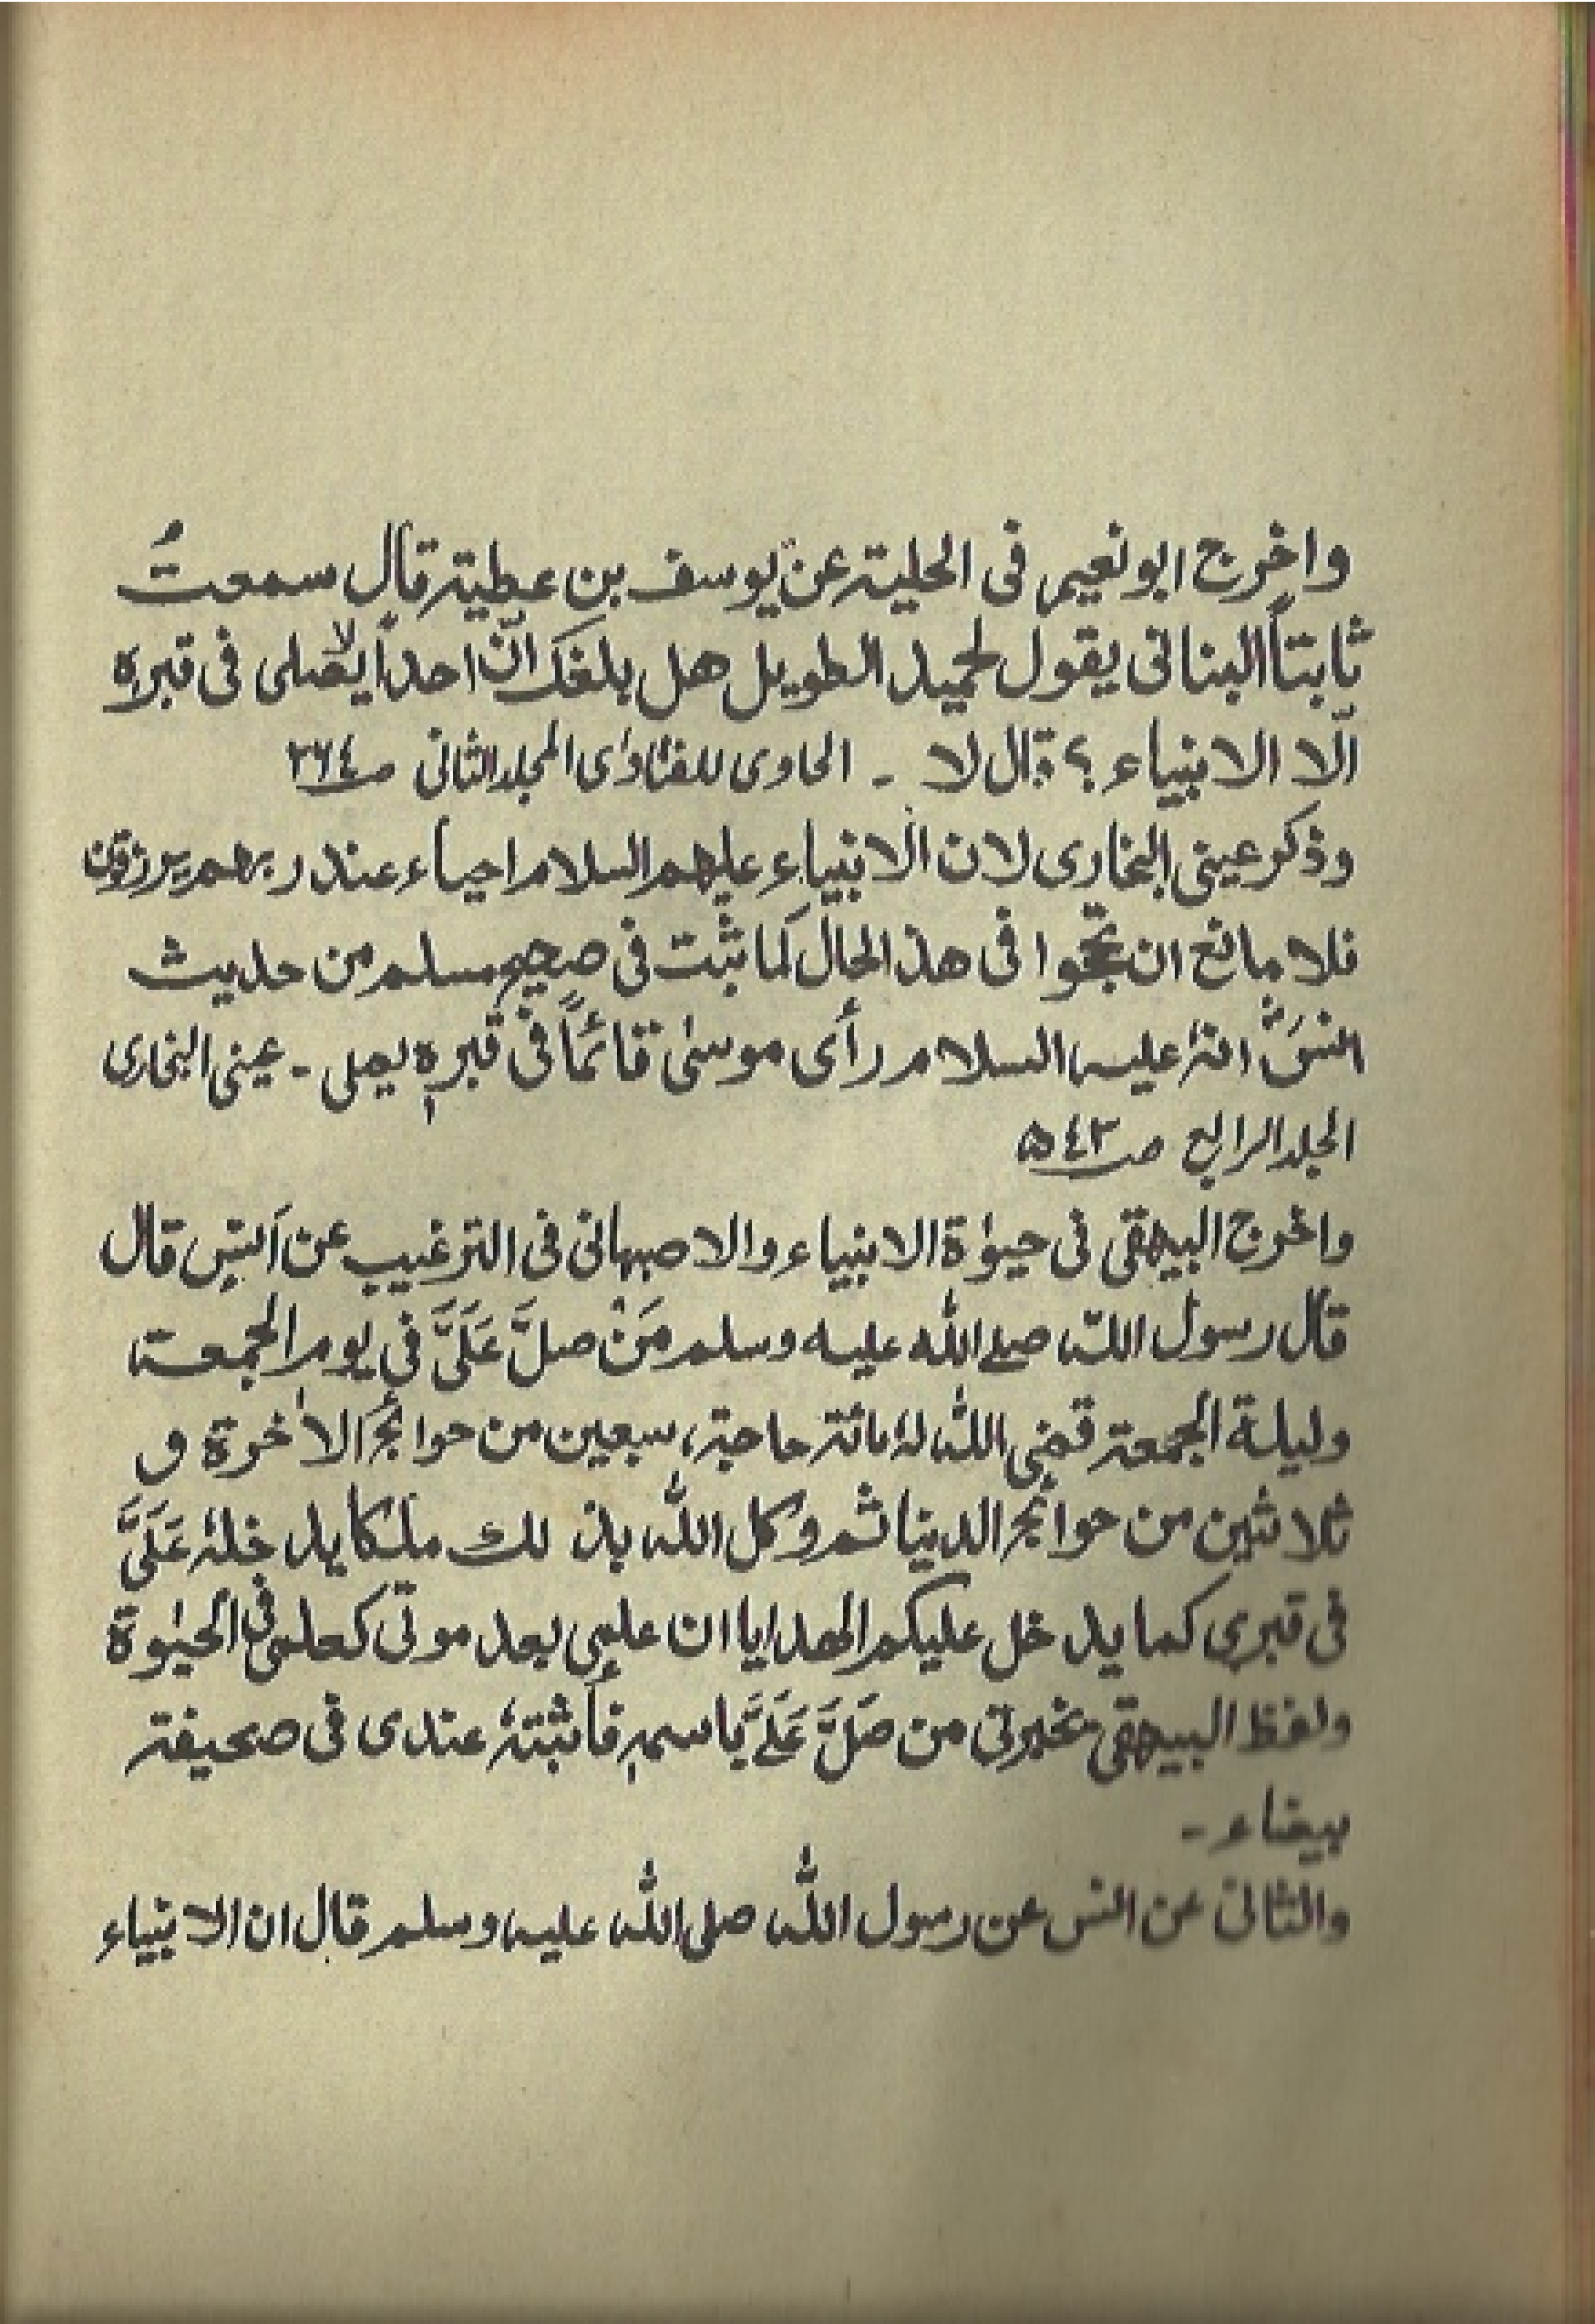 واخرج ابو نعيم فى الحلية عن يوسف بن عطية قال سمعتُ
ثابتاً البنانى يقول لحميد الطويل هل بلغك انّ احداً لا يصلى فى قبره
الّا الانبياء ؟ قال لا ۔ الحاوى للفتاوٰى المجلد الثانى صـ٢٦٤
وذكر عينى البخارى لان الانبياء عليهم السلام احياء عند ربهم يرزقون
فلا مانع ان يحجوا فى هذ الحال كما ثبت فى صحيح مسلم من حديث
انسؓ انهٗ عليه السلام رأى موسىٰ قائماً فى قبرهٖ يصلى ۔ عينى البخارى
الجلد الرابع صـ٥٤٣
واخرج البيهقى فى حيٰوة الانبياء والاصبهانى فى الترغيب عن اَنسٍ قال
قال رسول اللّه صلے اللّٰه عليه وسلم مَنْ صلَّ عَلَیَّ فى يوم الجمعة
وليلة الجمعة قضى اللّٰه لهٗ مائة حاجة، سبعين من حوائج الاٰخرة و
ثلاثين من حوائج الدينا ثم وكل اللّٰه بذلك ملكا يدخلهٗ عَلَیَّ
فى قبرى كما يدخل عليكم الهدايا ان علمى بعد موتى كعلمى فى الحيٰوة
ولفظ البيهقى يخبرنى من صَلَّ عَلَےَّ باسمهٖ فأثبتهٗ عندى فى صحيفة
بيضاء ۔
والثانى عن انس عن رسول اللّٰه صلى اللّٰه عليه وسلم قال ان الانبياء